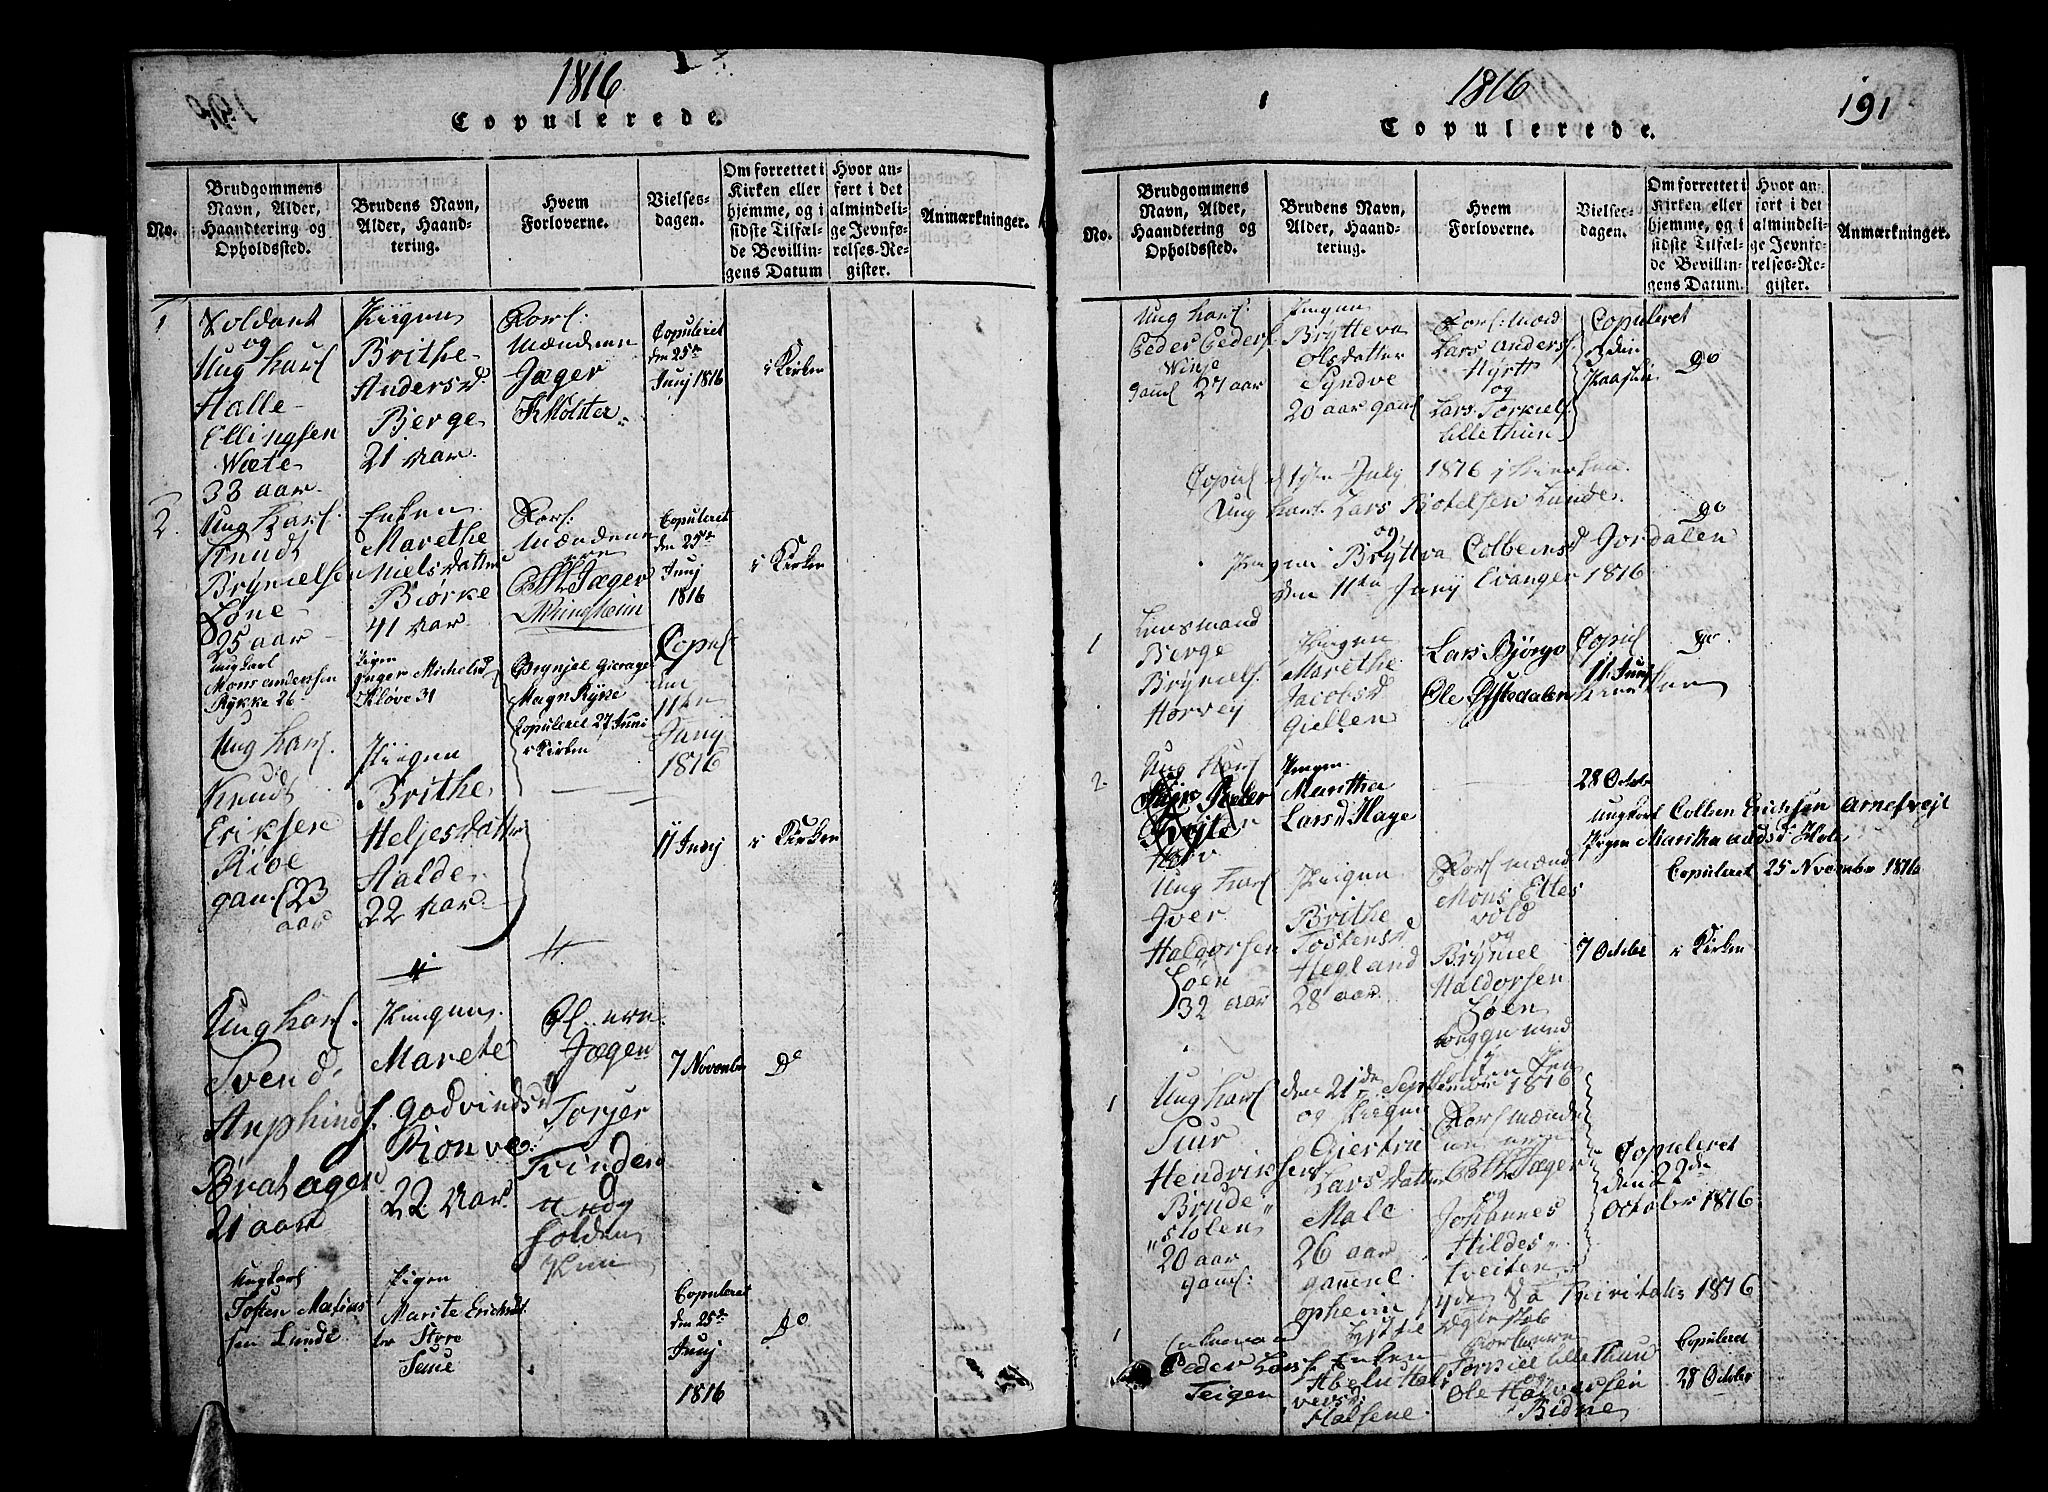 1816
Copulerede.
No.
Brudgommens
Navn, Alder,
Haandtering og
Opholdssted.
Brudens Navn,
Alder, Haand-
tering.
Hvem
Forloverne.
Vielses-
dagen.
Om forrettet i
Kirken eller
hjemme, og i
sidste Tilfæl-
de Bevillin-
gens Datum
Hvor an-
ført i det
almindeli-
ge Jevnfø-
relses-Re-
gister.
Anmærkninger.
1
Soldat
og
Ung Karl
Halle
Ellingsen
Wæte
33 aar
Pigen
Brithe
Andersd
Berge
21 Aar
Forl:
Mændene
Jæger
K Mölster
Copuleret
den 25de
Junj 1816
i Kirken
2.
Ung Karl
Knudt
Brynielsen
Löne
25 aar
Enken
Marethe
Nielsdatter
Biørke
41 Aar
Forl:
Mændene
ere
Jæger
Ringheim
Copuleret
den 25de
Junj
1816
i Kirken
Ungkarl
Mons Anderssen
Rykke 26
Pigen
Inger Michelsd
Kløve 31
Brynjel Gierager
Magn Rykke
Copuleret 27 Juni
i Kirken
Ung Karl
Knudt
Eriksen
Rioe
gaml 23
aar
Pigen
Brithe
Heljesdatter
Halde
22 Aar
Copul
11te
Junj
1816
11 Junj
i Kirken
Ung Karl
Svend
Anphind
Brahagen
21 aar
Pigen
Marete
Godvindsd
Rionve
22 Aar
Jægen
Torjer
Trinden
7 November
Do
Ungkarl
Tosten Matias
sen Lunde
Pigen
Marite Erichsdat
ter Styre
Seue
Copuleret
den 25de
Junj
1816
Do
1816
191
Copulerede.
No.
Brudgommens
Navn, Alder,
Haandtering og
Opholdssted.
Brudens Navn,
Alder, Haand-
tering.
Hvem
Forloverne.
Vielses-
dagen.
Om forrettet i
Kirken eller
hjemme, og i
sidste Tilfæl-
de Bevillin-
gens Datum.
Hvor an-
ført i det
almindeli-
ge Jevnfø-
relses-Re-
gister.
Anmærkninger.
Ung Karl:
Peder Peders
Winje
gaml 27 aar
Pigen
Brytteva
Olsdatter
Syndve
20 aar gaml
Forl: Mænd
Lars Anders
Hyrt
og
Lars Torkiels
Lillethun
Copuleret
do
Copul July 1816 i Kierken
Ung Karl Lars Botelsen Lunde
og
do
Pigen Bryttva Colbeinsd Jordalen
den 11te Junj Evanger 1816
1
Lensmand
Berge
Bryniels
Horvey
Pigen
Marethe
Jacobsd
Giellen
Lars Bjørgo
Ole Ofstedalen
Copul
11 Junj
do
2.
Ung Karl
Pigen
Maritha
Larsd Hage
28 Octobr
Ungkarl Colben Erichsen Arnefvejt
Pigen Maritha Hole
Copuleret 25 November 1816
Ung Karl
Iver
Haldorsen
Löen
32 aar
Pigen
Brithe
Tostensd
Hegland
28 aar
Forl mænd
Mons Ettes
vold
og
Bryniel
Haldorsen
Löen
7 October
i Kirken
1
Ung Karl den 21de September 1816
og Pigen
Siur
Hendriksen
Brude
"stolen"
20 aar
gaml:
Giertru
Larsdatter
Male
26 aar
gammel
Forl mænde
Jæger
og
Johannes
Hildes
tveiten
Copuleret
den 22de
October 1816
opheim 14de Sø Trinitatis 1816
1
Peder Lars
Teigen
Enken
Halsene
Torkiel Lillethun
og
Ole Halversen
Bidne
Copuleret
28 Octobr